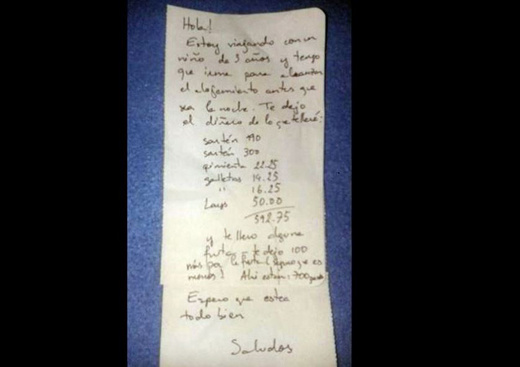 Hola!
Estoy viajando con un
niño de 3 años y tengo
que irme para alcanzar
el alojamiento antes que
sea la noche. Te dejo
el dinero de lo que llevé:
sartén 190
sartén 300
pimienta 22.25
galletas 14.25
" 16.25
50.00
592.75
y te llevo alguna
fruta - te dejo 100
más por la fruta (espero que es
menos) Ahí están: 700
Espero que estea
todo bien
Saludos